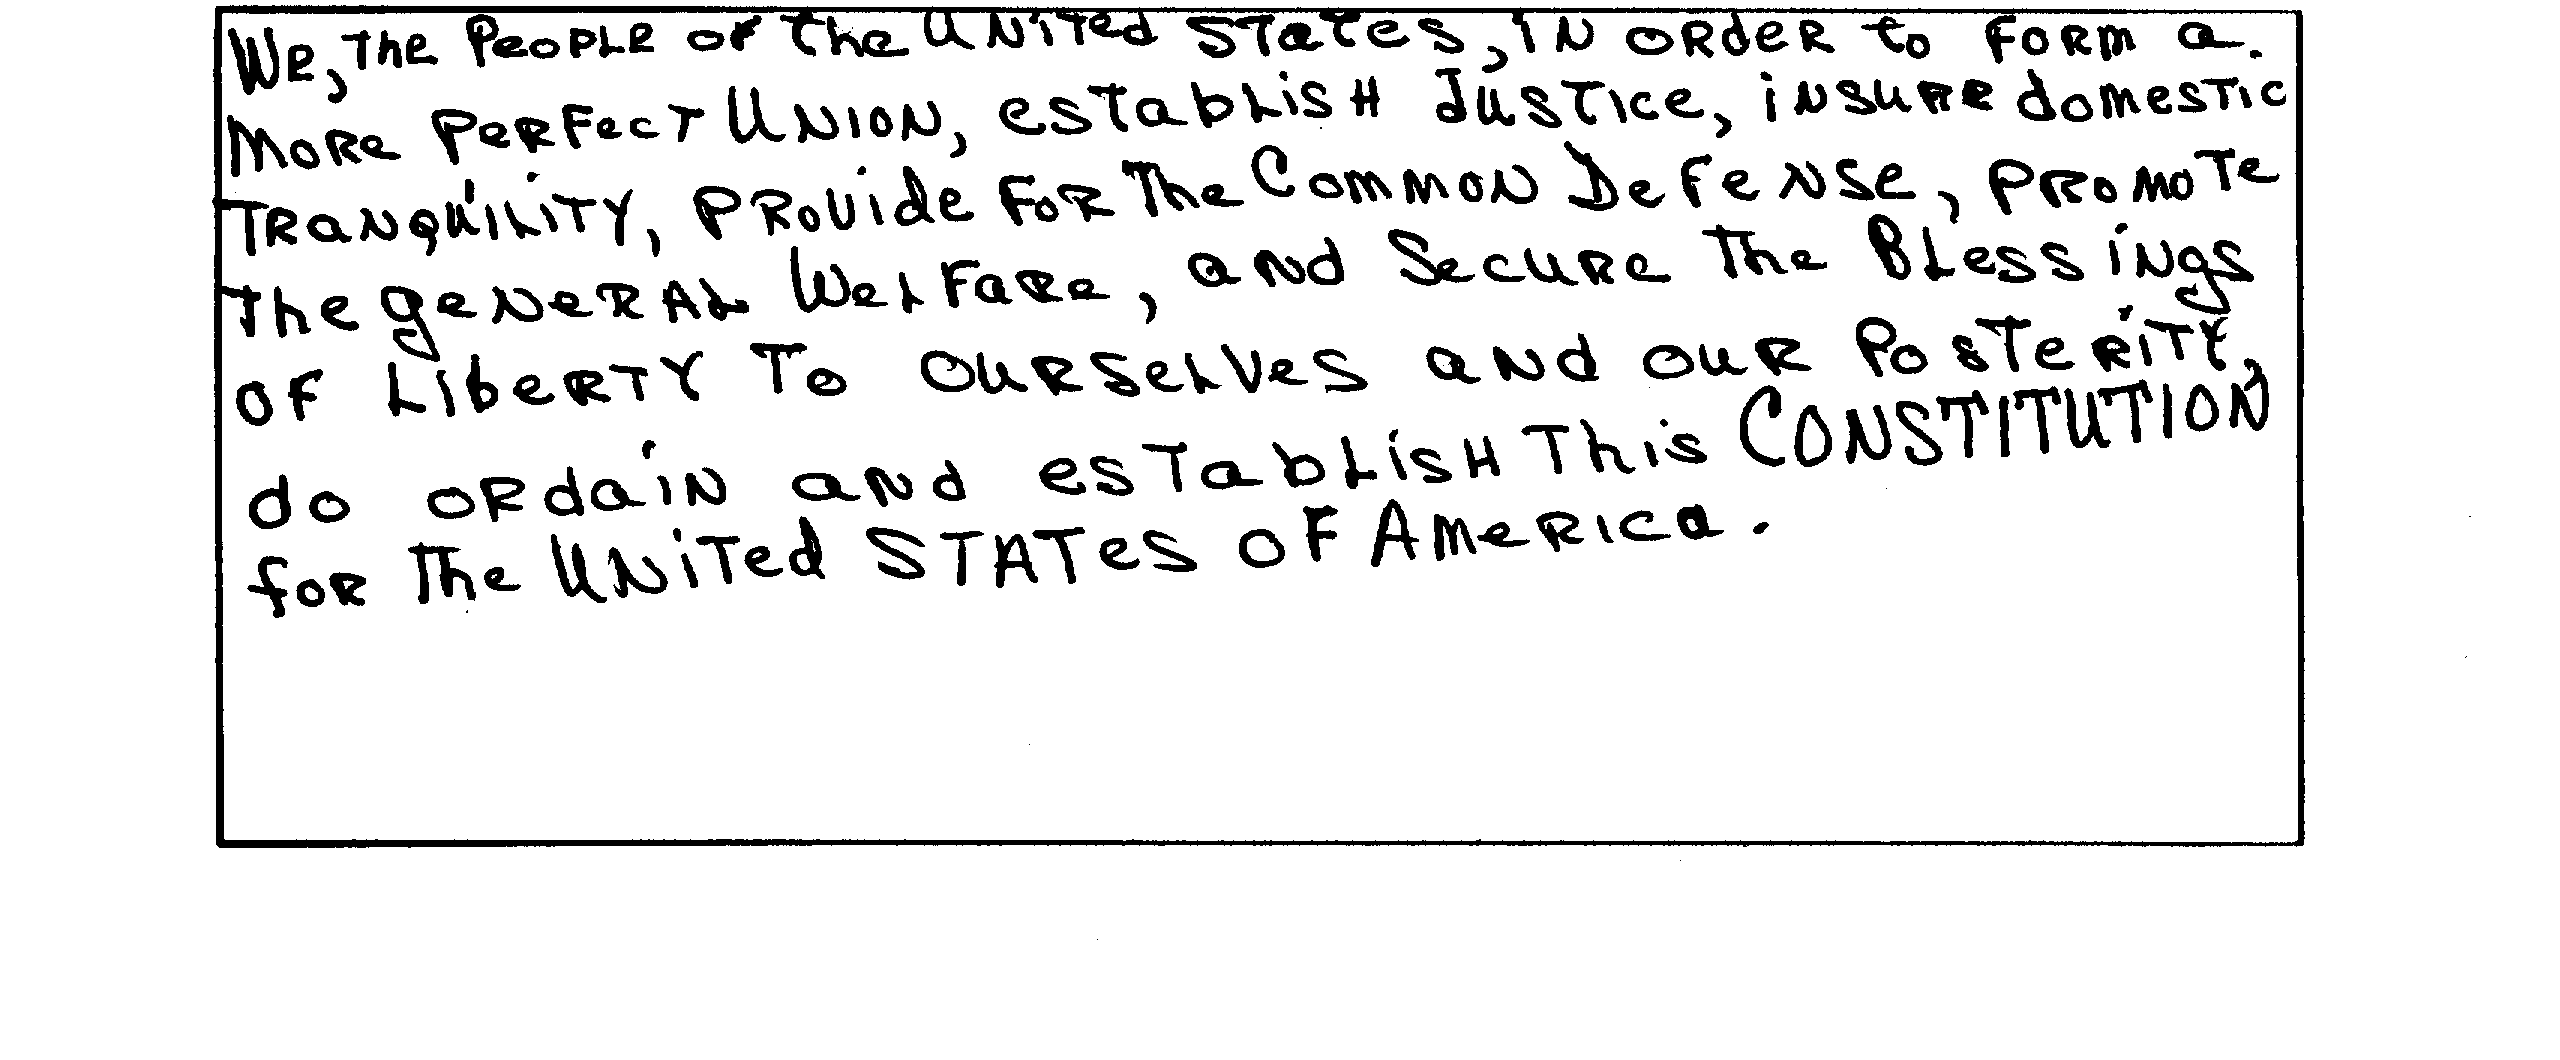 We, the People of the United States, in order to form a.
More perfect Union, establish Justice, insure domestic
Tranquility, provide for the Common Defense, promote
the general Welfare, and Secure the Blessings
of Liberty To ourselves and our Posterity,
do ordain and establish This CONSTITUTION
for the United States of America.